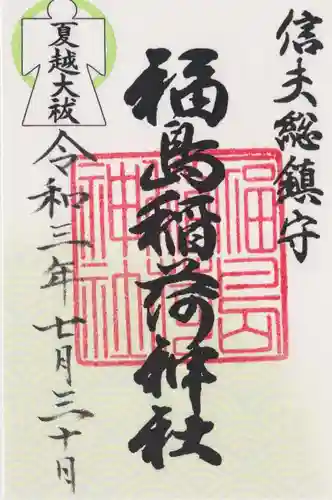 信夫総鎮守
福島稲荷神社
夏越大祓
令和三年七月三十日
福島稲荷神社